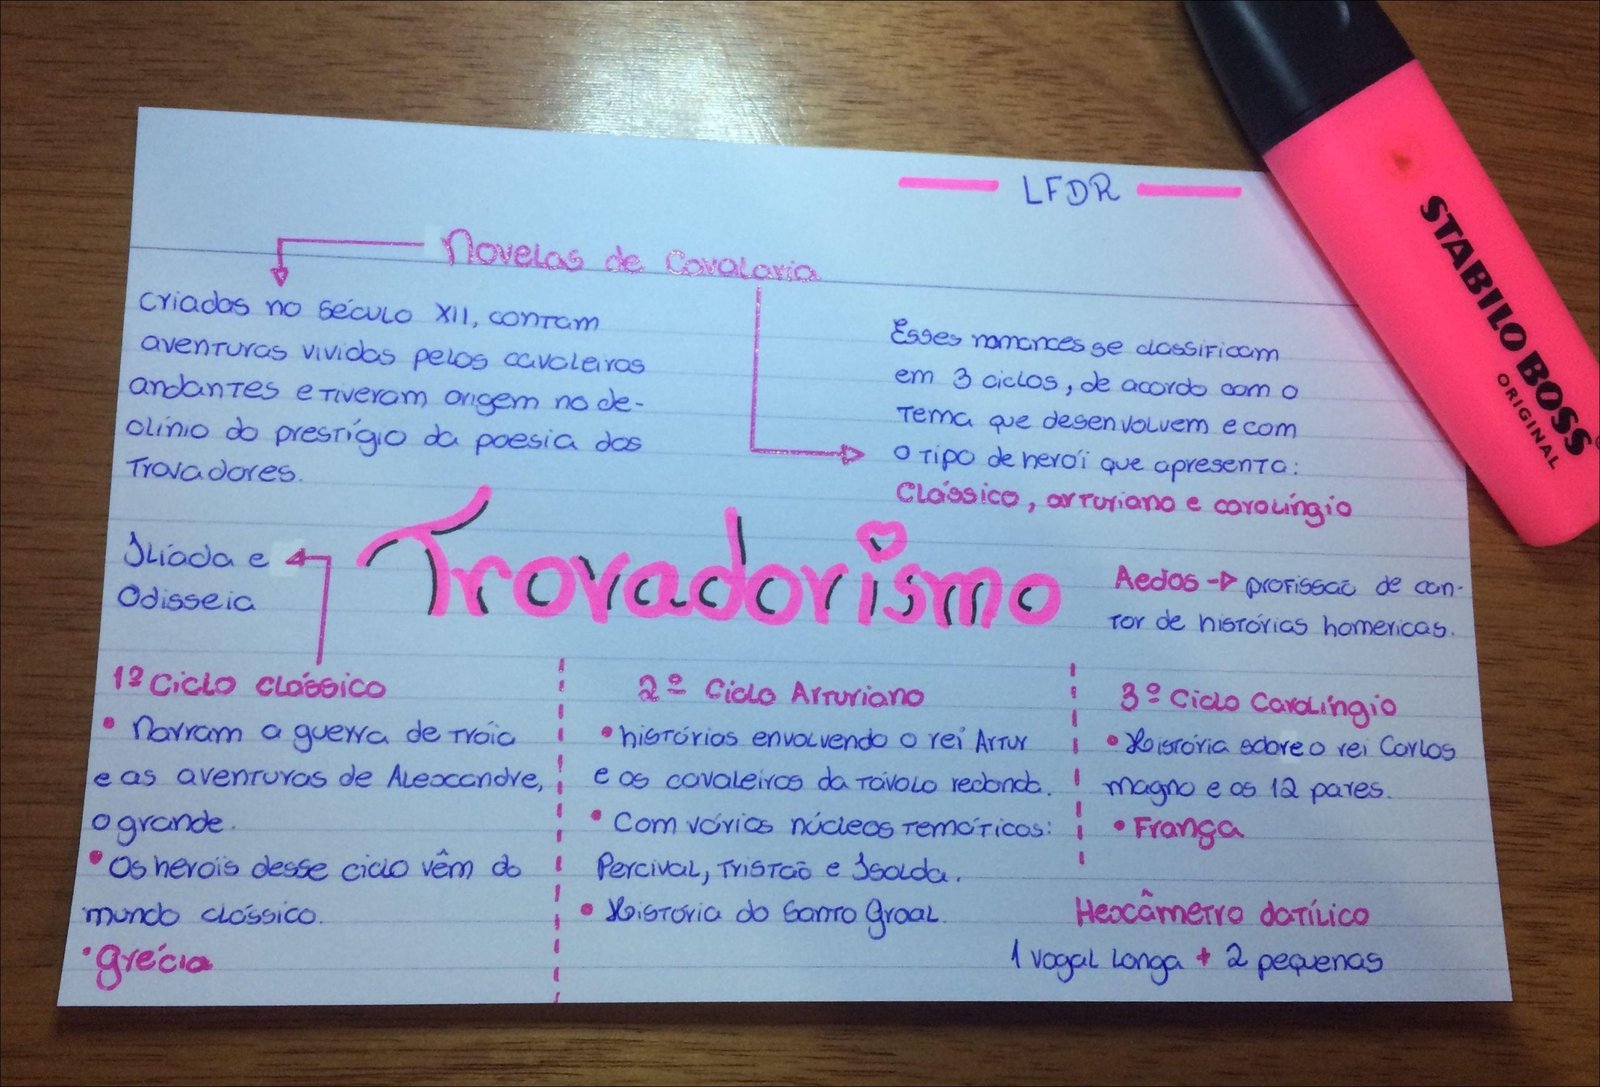 LFDR
Novelas de Cavalaria
Criadas no século XII, contam
aventuras vividas pelos cavaleiros
andantes e tiveram origem no de-
clínio do prestígio da poesia dos
Trovadores.
Esses romances se classificam
em 3 ciclos, de acordo com o
tema que desenvolvem e com
o tipo de herói que apresenta:
Clássico, arturiano e carolíngio
Trovadorismo
Ilíada e
Odisseia
Aedos -> profissão de can-
tor de histórias homericas.
1º Ciclo clássico
• Narram a guerra de tróia
e as aventuras de Alexandre,
o grande.
• Os herois desse ciclo vêm do
mundo clássico.
• grécia
2º Ciclo Arturiano
• histórias envolvendo o rei Artur
e os cavaleiros da távola redonda.
• Com vários núcleos temáticos:
Percival, Tristão e Isolda.
• História do Santo Graal.
3º Ciclo Carolíngio
• História sobre o rei Carlos
magno e os 12 pares.
• França
Hexâmetro datílico
1 vogal longa + 2 pequenas
STABILO BOSS
ORIGINAL